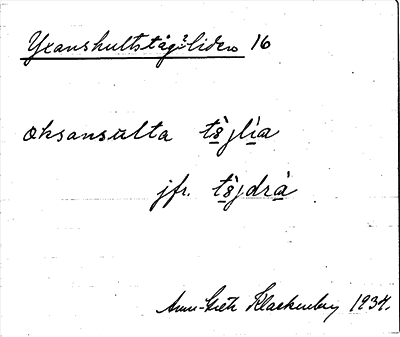 Yxanshultstägliden 16
oksansulta tä̀jlìa
jfr. tä̀jdrà
Anna-Greta Klackenberg 1934.